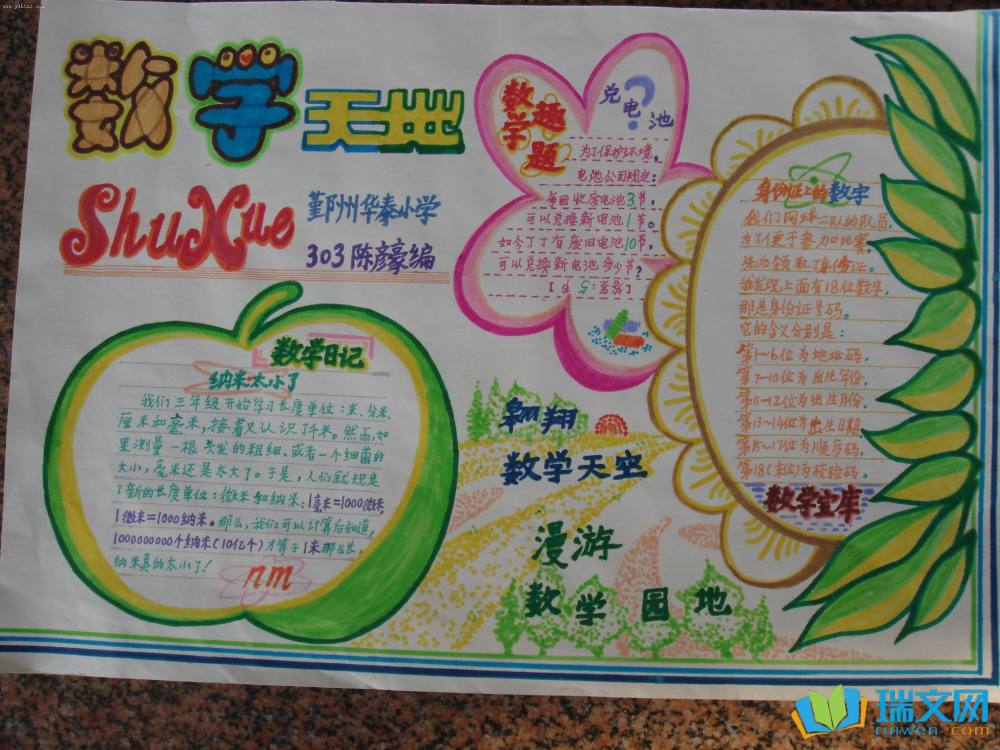 数学天地
ShuXue
鄞州华泰小学
303陈彦豪编
数学日记
纳米太小了
我们三年级开始学习长度单位:米、分米、
厘米和毫米,接着又认识了千米。然而,如
果测量一根头发的粗细、或者一个细菌的
大小,毫米还是太大了。于是,人们就规定
了新的长度单位:微米和纳米。1毫米=1000微米
1微米=1000纳米。那么,我们可以计算后知道,
1000000000个纳米(10亿个)才等于1米那么长,
纳米真的太小了!
nm
数学趣题
兑电池
?
为了保护环境,
电池公司规定:
每回收废电池3节,
可以兑换新电池1节。
如今丁丁有废旧电池10节,
可以兑换新电池多少节?
[答案:5节]
翱翔
数学天空
漫游
数学园地
身份证上的数字
我们网球二队的队员,
为了便于参加比赛,
领取了身份证。
我发现上面有18位数字,
那是身份证号码。
它的含义分别是:
第1~6位为地址码,
第7~10位为出生年份,
第11~12位为出生月份,
第13~14位为出生日期,
第15~17位为顺序码,
第18(末)位为校验码。
数学宝库
瑞文网
ruiwen.com